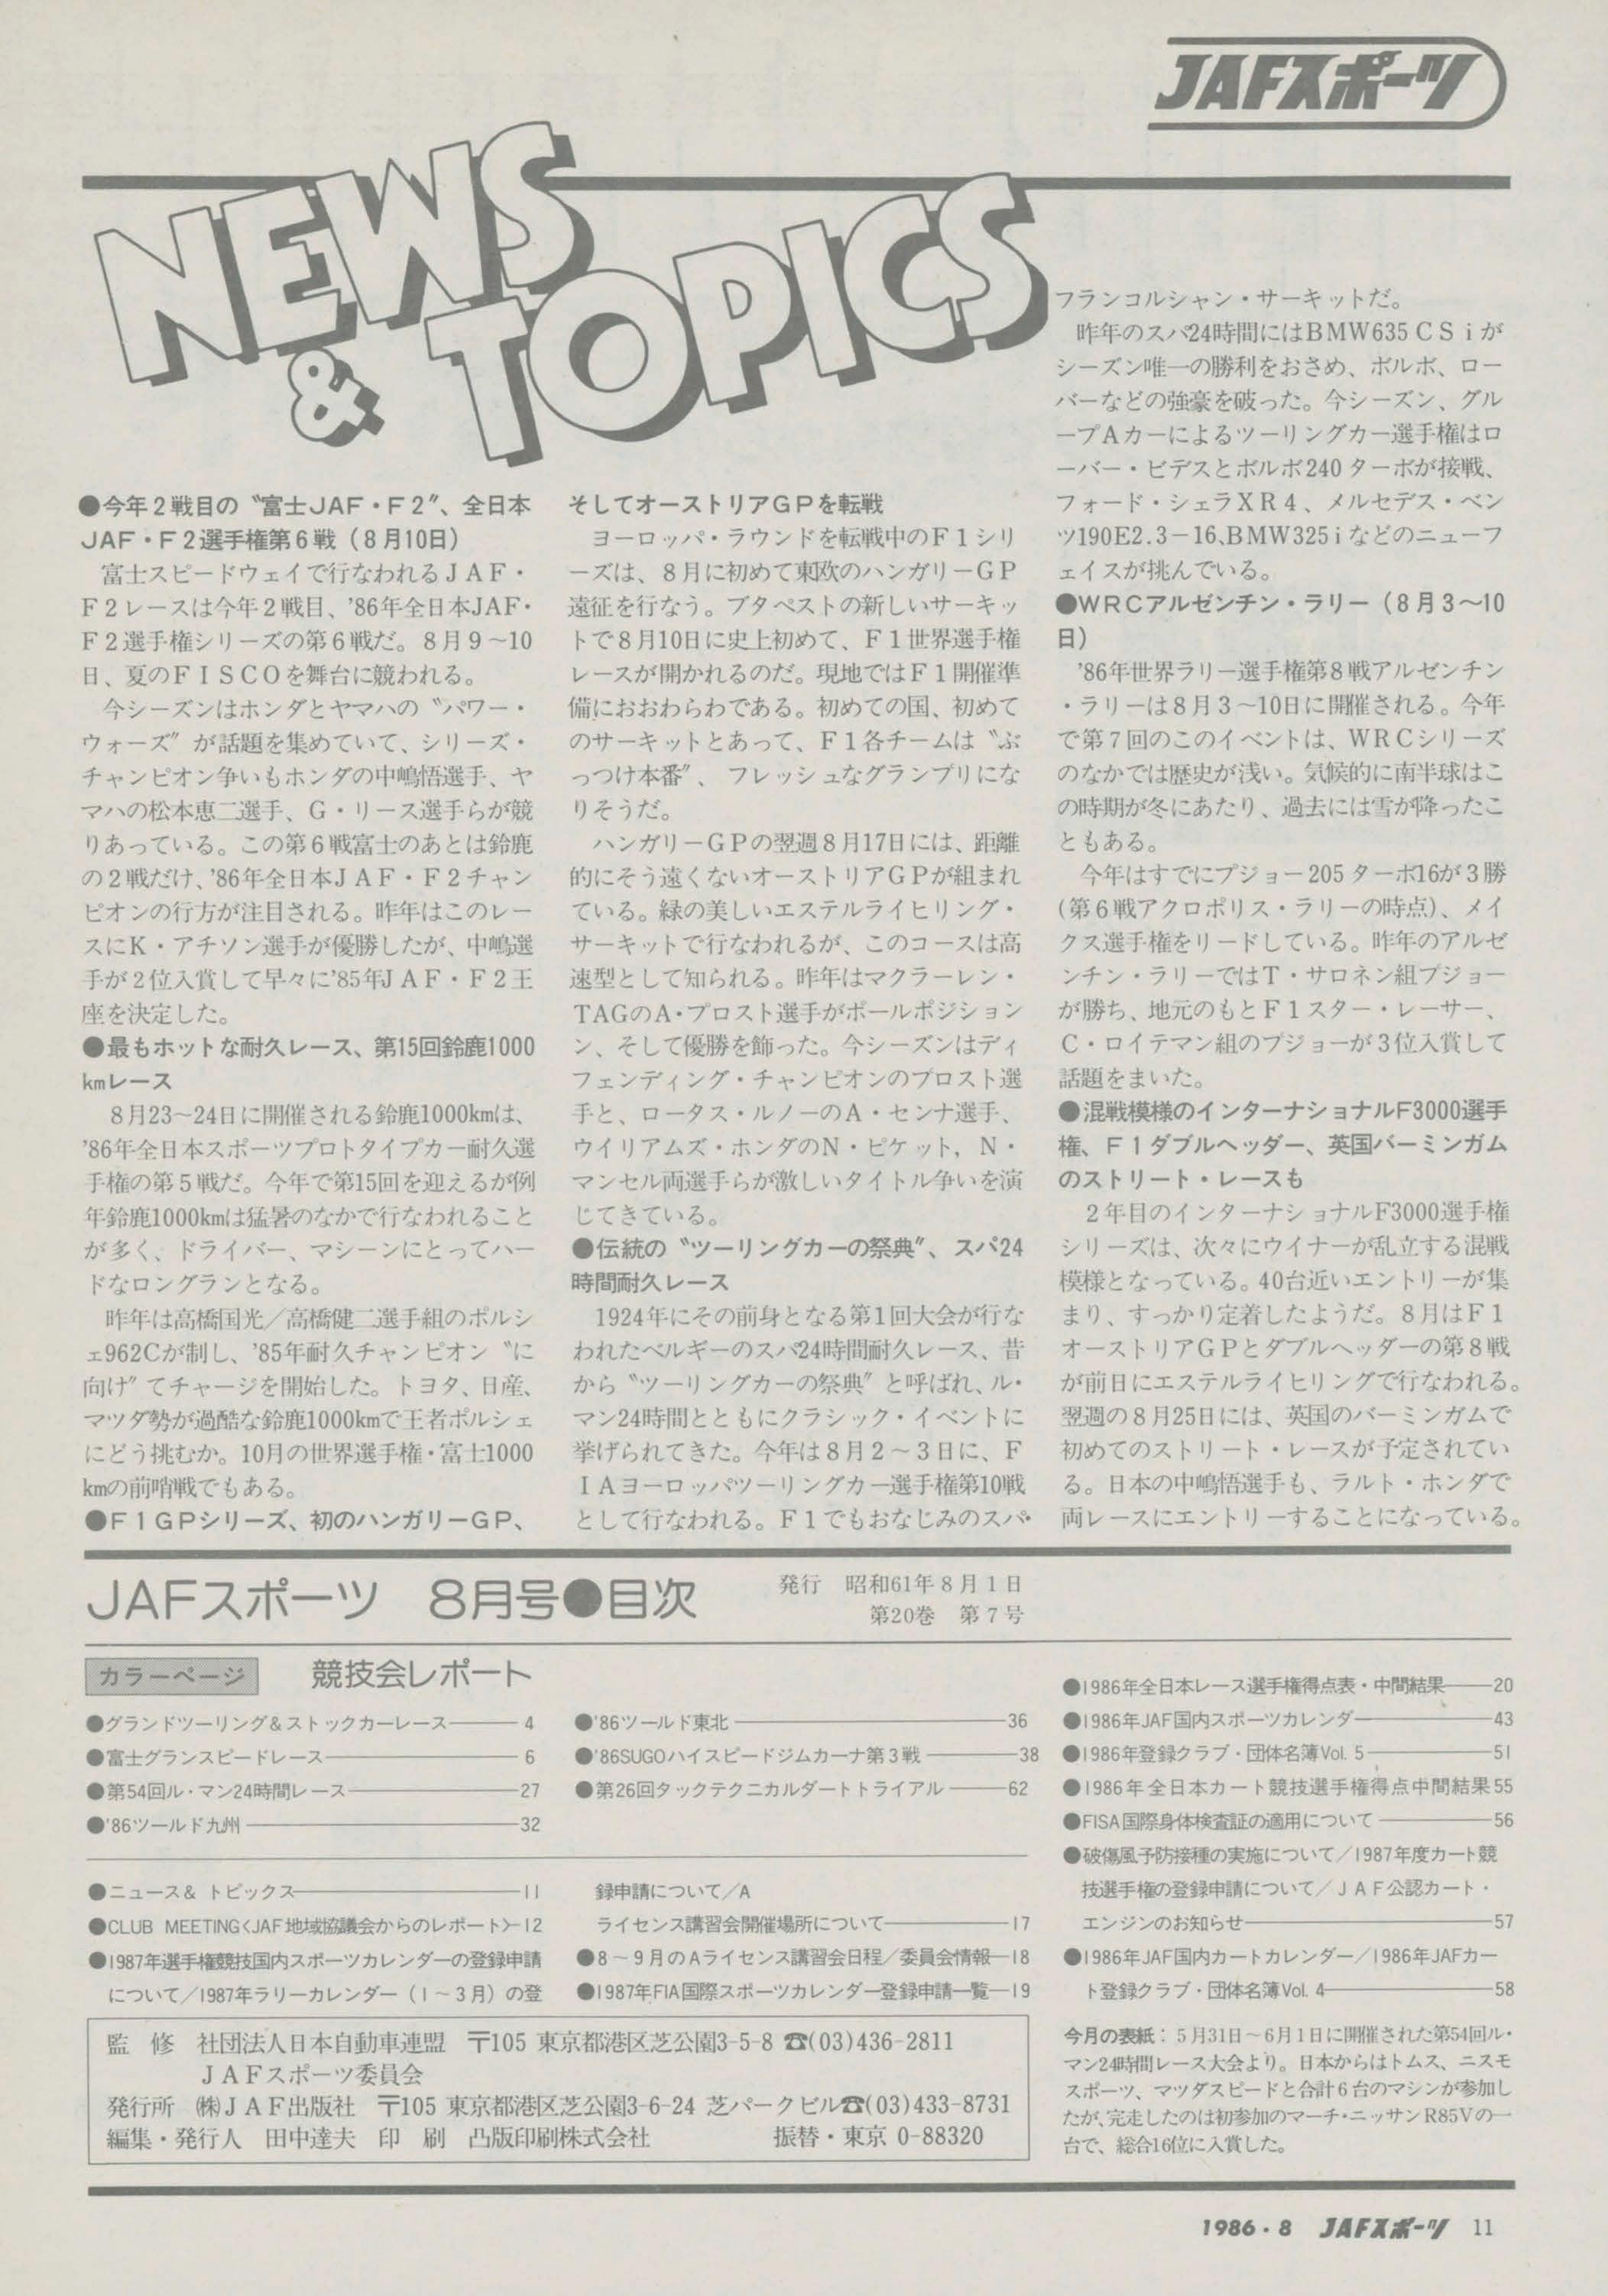 JAFスポーツ
NEWS
& TOPICS
●今年2戦目の〝富士JAF・F2〟、全日本
JAF・F2選手権第6戦（8月10日）
富士スピードウェイで行なわれるJAF・
F2レースは今年2戦目、'86年全日本JAF・
F2選手権シリーズの第6戦だ。8月9～10
日、夏のFISCOを舞台に競われる。
今シーズンはホンダとヤマハの〝パワー・
ウォーズ〟が話題を集めていて、シリーズ・
チャンピオン争いもホンダの中嶋悟選手、ヤ
マハの松本恵二選手、G・リース選手らが競
りあっている。この第6戦富士のあとは鈴鹿
の2戦だけ、'86年全日本JAF・F2チャン
ピオンの行方が注目される。昨年はこのレー
スにK・アチソン選手が優勝したが、中嶋選
手が2位入賞して早々に'85年JAF・F2王
座を決定した。
●最もホットな耐久レース、第15回鈴鹿1000
kmレース
8月23～24日に開催される鈴鹿1000kmは、
'86年全日本スポーツプロトタイプカー耐久選
手権の第5戦だ。今年で第15回を迎えるが例
年鈴鹿1000kmは猛暑のなかで行なわれること
が多く、ドライバー、マシーンにとってハー
ドなロングランとなる。
昨年は高橋国光／高橋健二選手組のポルシ
ェ962Cが制し、'85年耐久チャンピオン〝に
向け〟てチャージを開始した。トヨタ、日産、
マツダ勢が過酷な鈴鹿1000kmで王者ポルシェ
にどう挑むか。10月の世界選手権・富士1000
kmの前哨戦でもある。
●F1GPシリーズ、初のハンガリーGP、
そしてオーストリアGPを転戦
ヨーロッパ・ラウンドを転戦中のF1シリ
ーズは、8月に初めて東欧のハンガリーGP
遠征を行なう。ブタペストの新しいサーキッ
トで8月10日に史上初めて、F1世界選手権
レースが開かれるのだ。現地ではF1開催準
備におおわらわである。初めての国、初めて
のサーキットとあって、F1各チームは〝ぶ
っつけ本番〟、フレッシュなグランプリにな
りそうだ。
ハンガリーGPの翌週8月17日には、距離
的にそう遠くないオーストリアGPが組まれ
ている。緑の美しいエステルライヒリング・
サーキットで行なわれるが、このコースは高
速型として知られる。昨年はマクラーレン・
TAGのA・プロスト選手がポールポジション
ン、そして優勝を飾った。今シーズンはディ
フェンディング・チャンピオンのプロスト選
手と、ロータス・ルノーのA・センナ選手、
ウイリアムズ・ホンダのN・ピケット，N・
マンセル両選手らが激しいタイトル争いを演
じてきている。
●伝統の〝ツーリングカーの祭典〟、スパ24
時間耐久レース
1924年にその前身となる第1回大会が行な
われたベルギーのスパ24時間耐久レース、昔
から〝ツーリングカーの祭典〟と呼ばれ、ル・
マン24時間とともにクラシック・イベントに
挙げられてきた。今年は8月2～3日に、F
IAヨーロッパツーリングカー選手権第10戦
として行なわれる。F1でもおなじみのスパ・
フランコルシャン・サーキットだ。
昨年のスパ24時間にはBMW635CSiが
シーズン唯一の勝利をおさめ、ボルボ、ロー
バーなどの強豪を破った。今シーズン、グル
ープAカーによるツーリングカー選手権はロ
ーバー・ビデスとボルボ240ターボが接戦、
フォード・シェラXR4、メルセデス・ベン
ツ190E2.3－16、BMW325iなどのニューフ
ェイスが挑んでいる。
●WRCアルゼンチン・ラリー（8月3～10
日）
'86年世界ラリー選手権第8戦アルゼンチン
・ラリーは8月3～10日に開催される。今年
で第7回のこのイベントは、WRCシリーズ
のなかでは歴史が浅い。気候的に南半球はこ
の時期が冬にあたり、過去には雪が降ったこ
ともある。
今年はすでにプジョー205ターボ16が3勝
（第6戦アクロポリス・ラリーの時点）、メイ
クス選手権をリードしている。昨年のアルゼ
ンチン・ラリーではT・サロネン組プジョー
が勝ち、地元のもとF1スター・レーサー、
C・ロイテマン組のプジョーが3位入賞して
話題をまいた。
●混戦模様のインターナショナルF3000選手
権、F1ダブルヘッダー、英国バーミンガム
のストリート・レースも
2年目のインターナショナルF3000選手権
シリーズは、次々にウイナーが乱立する混戦
模様となっている。40台近いエントリーが集
まり、すっかり定着したようだ。8月はF1
オーストリアGPとダブルヘッダーの第8戦
が前日にエステルライヒリングで行なわれる。
翌週の8月25日には、英国のバーミンガムで
初めてのストリート・レースが予定されてい
る。日本の中嶋悟選手も、ラルト・ホンダで
両レースにエントリーすることになっている。
JAFスポーツ　8月号●目次
発行　昭和61年8月1日
第20巻　第7号
カラーページ　競技会レポート
●グランドツーリング&ストックカーレース――4
●富士グランスピードレース――6
●第54回ル・マン24時間レース――27
●'86ツールド九州――32
●'86ツールド東北――36
●'86SUGOハイスピードジムカーナ第3戦――38
●第26回タックテクニカルダートトライアル――62
●ニュース& トピックス――11
●CLUB MEETING〈JAF地域協議会からのレポート〉―12
●1987年選手権競技国内スポーツカレンダーの登録申請
について／1987年ラリーカレンダー（1～3月）の登
録申請について／A
ライセンス講習会開催場所について――17
●8～9月のAライセンス講習会日程／委員会情報―18
●1987年FIA国際スポーツカレンダー登録申請一覧―19
●1986年全日本レース選手権得点表・中間結果――20
●1986年JAF国内スポーツカレンダー――43
●1986年登録クラブ・団体名簿Vol. 5――51
●1986年全日本カート競技選手権得点中間結果55
●FISA国際身体検査証の適用について――56
●破傷風予防接種の実施について／1987年度カート競
技選手権の登録申請について／JAF公認カート・
エンジンのお知らせ――57
●1986年JAF国内カートカレンダー／1986年JAFカー
ト登録クラブ・団体名簿Vol. 4――58
監　修　社団法人日本自動車連盟　〒105 東京都港区芝公園3-5-8 ☎(03)436-2811
JAFスポーツ委員会
発行所　㈱JAF出版社　〒105 東京都港区芝公園3-6-24 芝パークビル☎(03)433-8731
編集・発行人　田中達夫　印　刷　凸版印刷株式会社　振替・東京 0-88320
今月の表紙：5月31日～6月1日に開催された第54回ル・
マン24時間レース大会より。日本からはトムス、ニスモ
スポーツ、マツダスピードと合計6台のマシンが参加し
たが、完走したのは初参加のマーチ・ニッサンR85Vの一
台で、総合16位に入賞した。
1986・8　JAFスポーツ　11